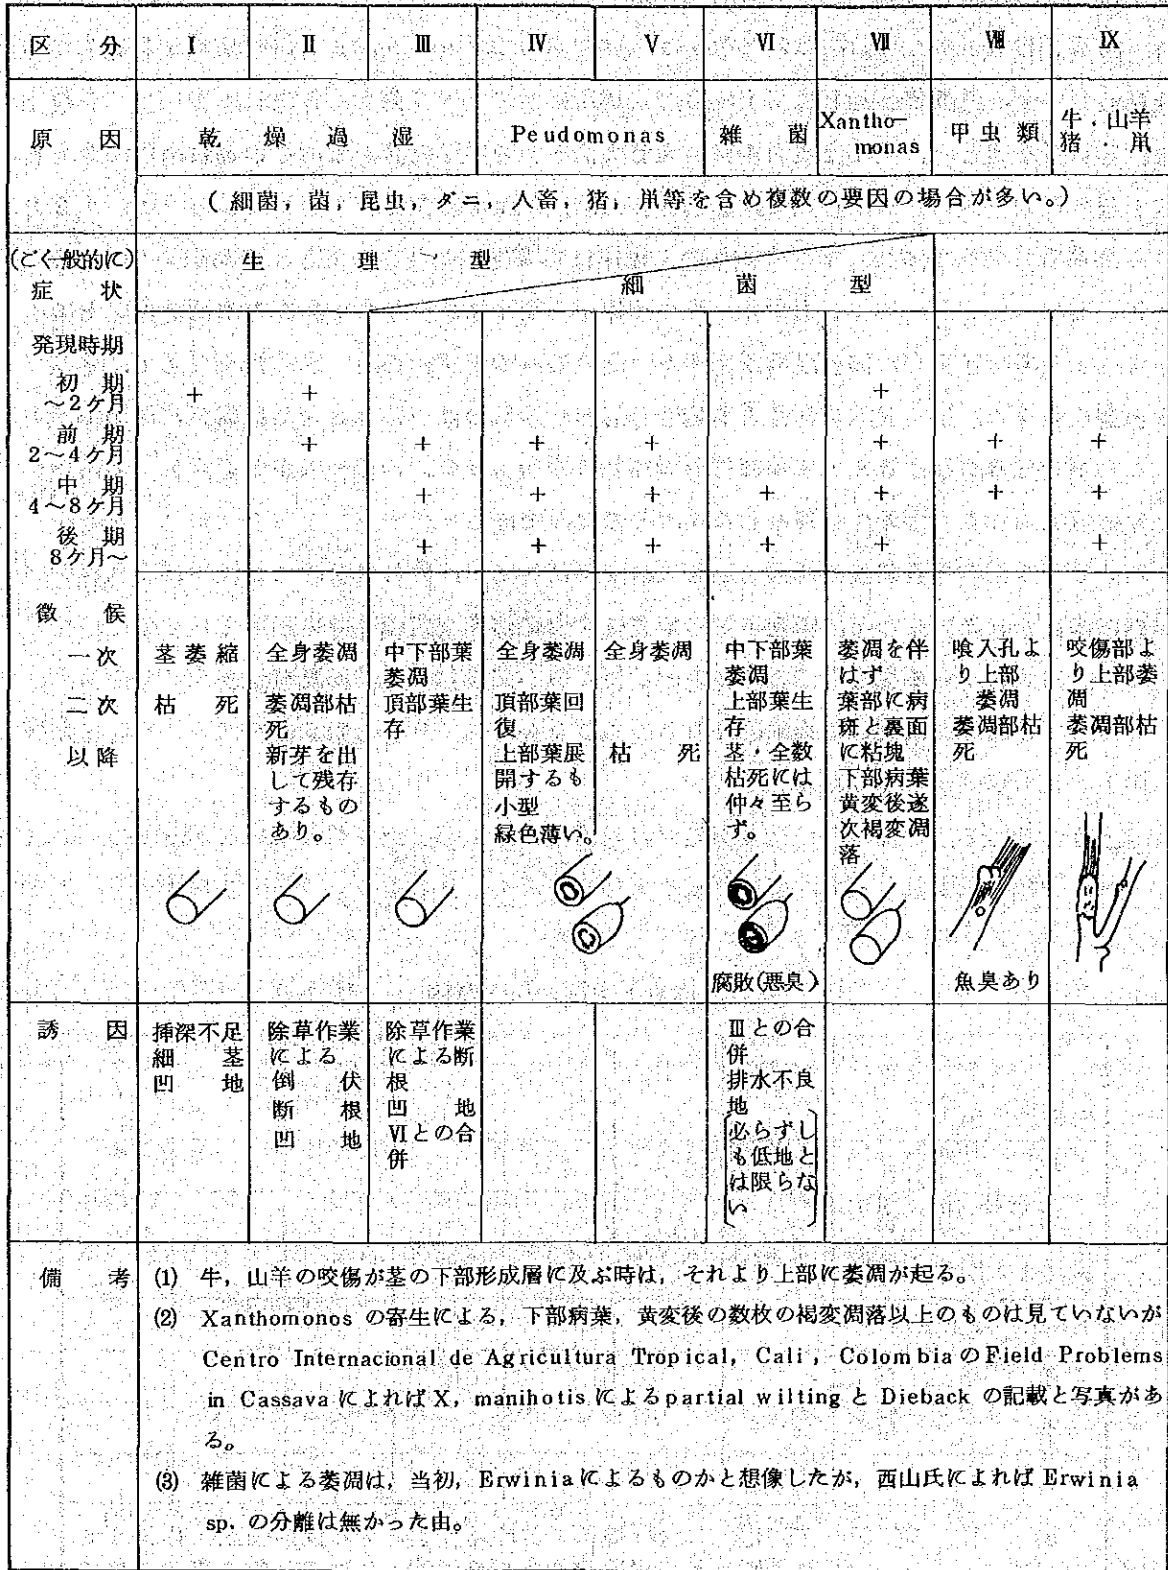 区 分 I II III IV V VI VII VIII IX
原 因 乾 燥 過 湿 Peudomonas 雑 菌 Xantho- 甲虫類 牛・山羊
monas 猪・鼡
(細菌,菌,昆虫,ダニ,人畜,猪,鼡等を含め複数の要因の場合が多い。)
(ごく一般的に) 生 理 型
症 状 細 菌 型
発現時期
初 期
~2ケ月 + + +
前 期
2~4ケ月 + + + + + + +
中 期
4~8ケ月 + + + + + + +
後 期
8ケ月~ + + + + + +
徴 候
一次
二次
以降
茎萎縮
枯 死
全身萎凋
萎凋部枯
死
新芽を出
して残存
するもの
あり。
中下部葉
萎凋
頂部葉生
存
全身萎凋
頂部葉回
復
上部葉展
開するも
小型
緑色薄い。
全身萎凋
枯 死
中下部葉
萎凋
上部葉生
存
茎・全数
枯死には
仲々至ら
ず。
腐敗(悪臭)
萎凋を伴
はず
葉部に病
斑と裏面
に粘塊
下部病葉
黄変後遂
次褐変凋
落
喰入孔よ
り上部
萎凋
萎凋部枯
死
魚臭あり
咬傷部よ
り上部萎
凋
萎凋部枯
死
誘 因
挿深不足
細 茎
凹 地
除草作業
による
倒 伏
断 根
凹 地
除草作業
による断
根
凹 地
VIとの合
併
IIIとの合
併
排水不良
地
必らずし
も低地と
は限らな
い
備 考
(1) 牛,山羊の咬傷が茎の下部形成層に及ぶ時は,それより上部に萎凋が起る。
(2) Xanthomonos の寄生による,下部病葉,黄変後の数枚の褐変凋落以上のものは見ていないが
Centro Internacional de Agricultura Tropical, Cali, Colombia の Field Problems
in Cassava によれば X, manihotis による partial wilting と Dieback の記載と写真があ
る。
(3) 雑菌による萎凋は,当初,Erwinia によるものかと想像したが,西山氏によれば Erwinia
sp. の分離は無かった由。